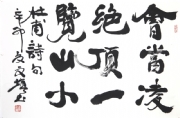 會當凌
絶頂一
覽山小
杜甫詩句
辛卯